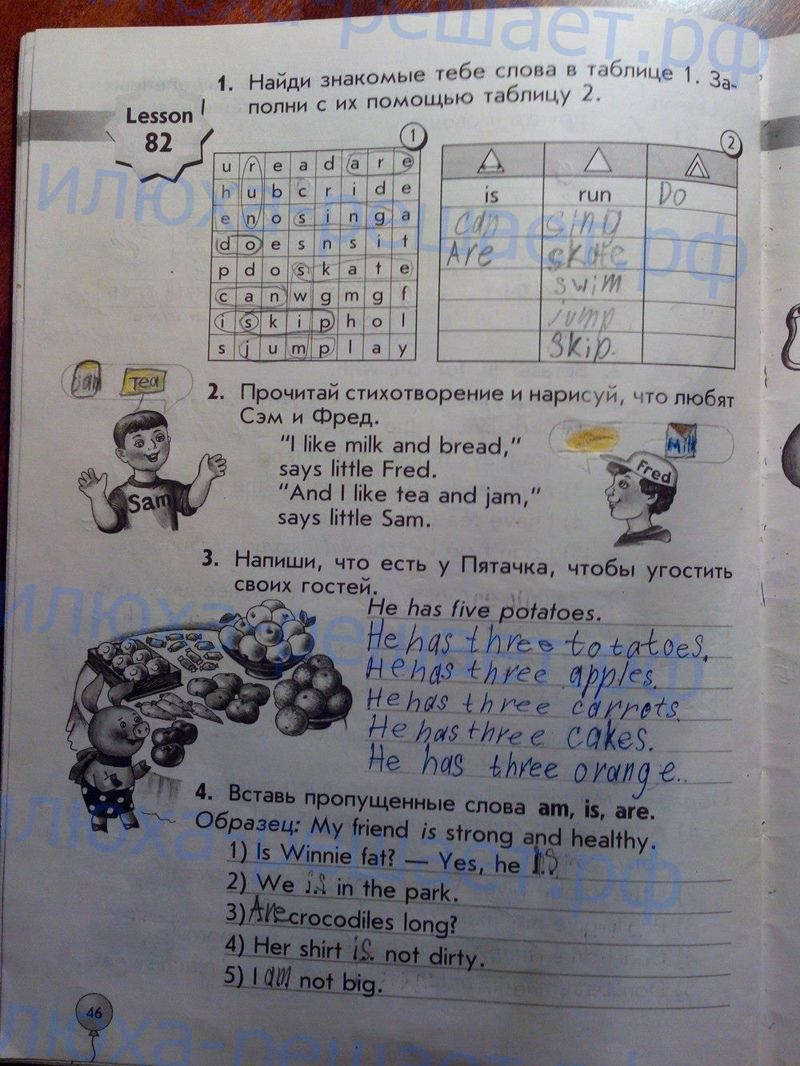 илюха-решает.рф
1. Найди знакомые тебе слова в таблице 1. За-
полни с их помощью таблицу 2.
Lesson
82
1
u r e a d a r e
h u b c r i d e
e n o s i n g a
d o e s n s i t
p d o s k a t e
c a n w g m g f
i s k i p h o l
s j u m p l a y
2
is run Do
can sing
Are skate
swim
jump
skip.
jam Tea
2. Прочитай стихотворение и нарисуй, что любят
Сэм и Фред.
"I like milk and bread,"
says little Fred.
"And I like tea and jam,"
says little Sam.
Sam
Milk
Fred
3. Напиши, что есть у Пятачка, чтобы угостить
своих гостей.
He has five potatoes.
He has three totatoes.
He has three apples.
He has three carrots.
He has three cakes.
He has three orange.
4. Вставь пропущенные слова am, is, are.
Образец: My friend is strong and healthy.
1) Is Winnie fat? — Yes, he is
2) We is in the park.
3) Are crocodiles long?
4) Her shirt is not dirty.
5) I am not big.
46
илюха-решает.рф
илюха-решает.рф
илюха-решает.рф
илюха-решает.рф